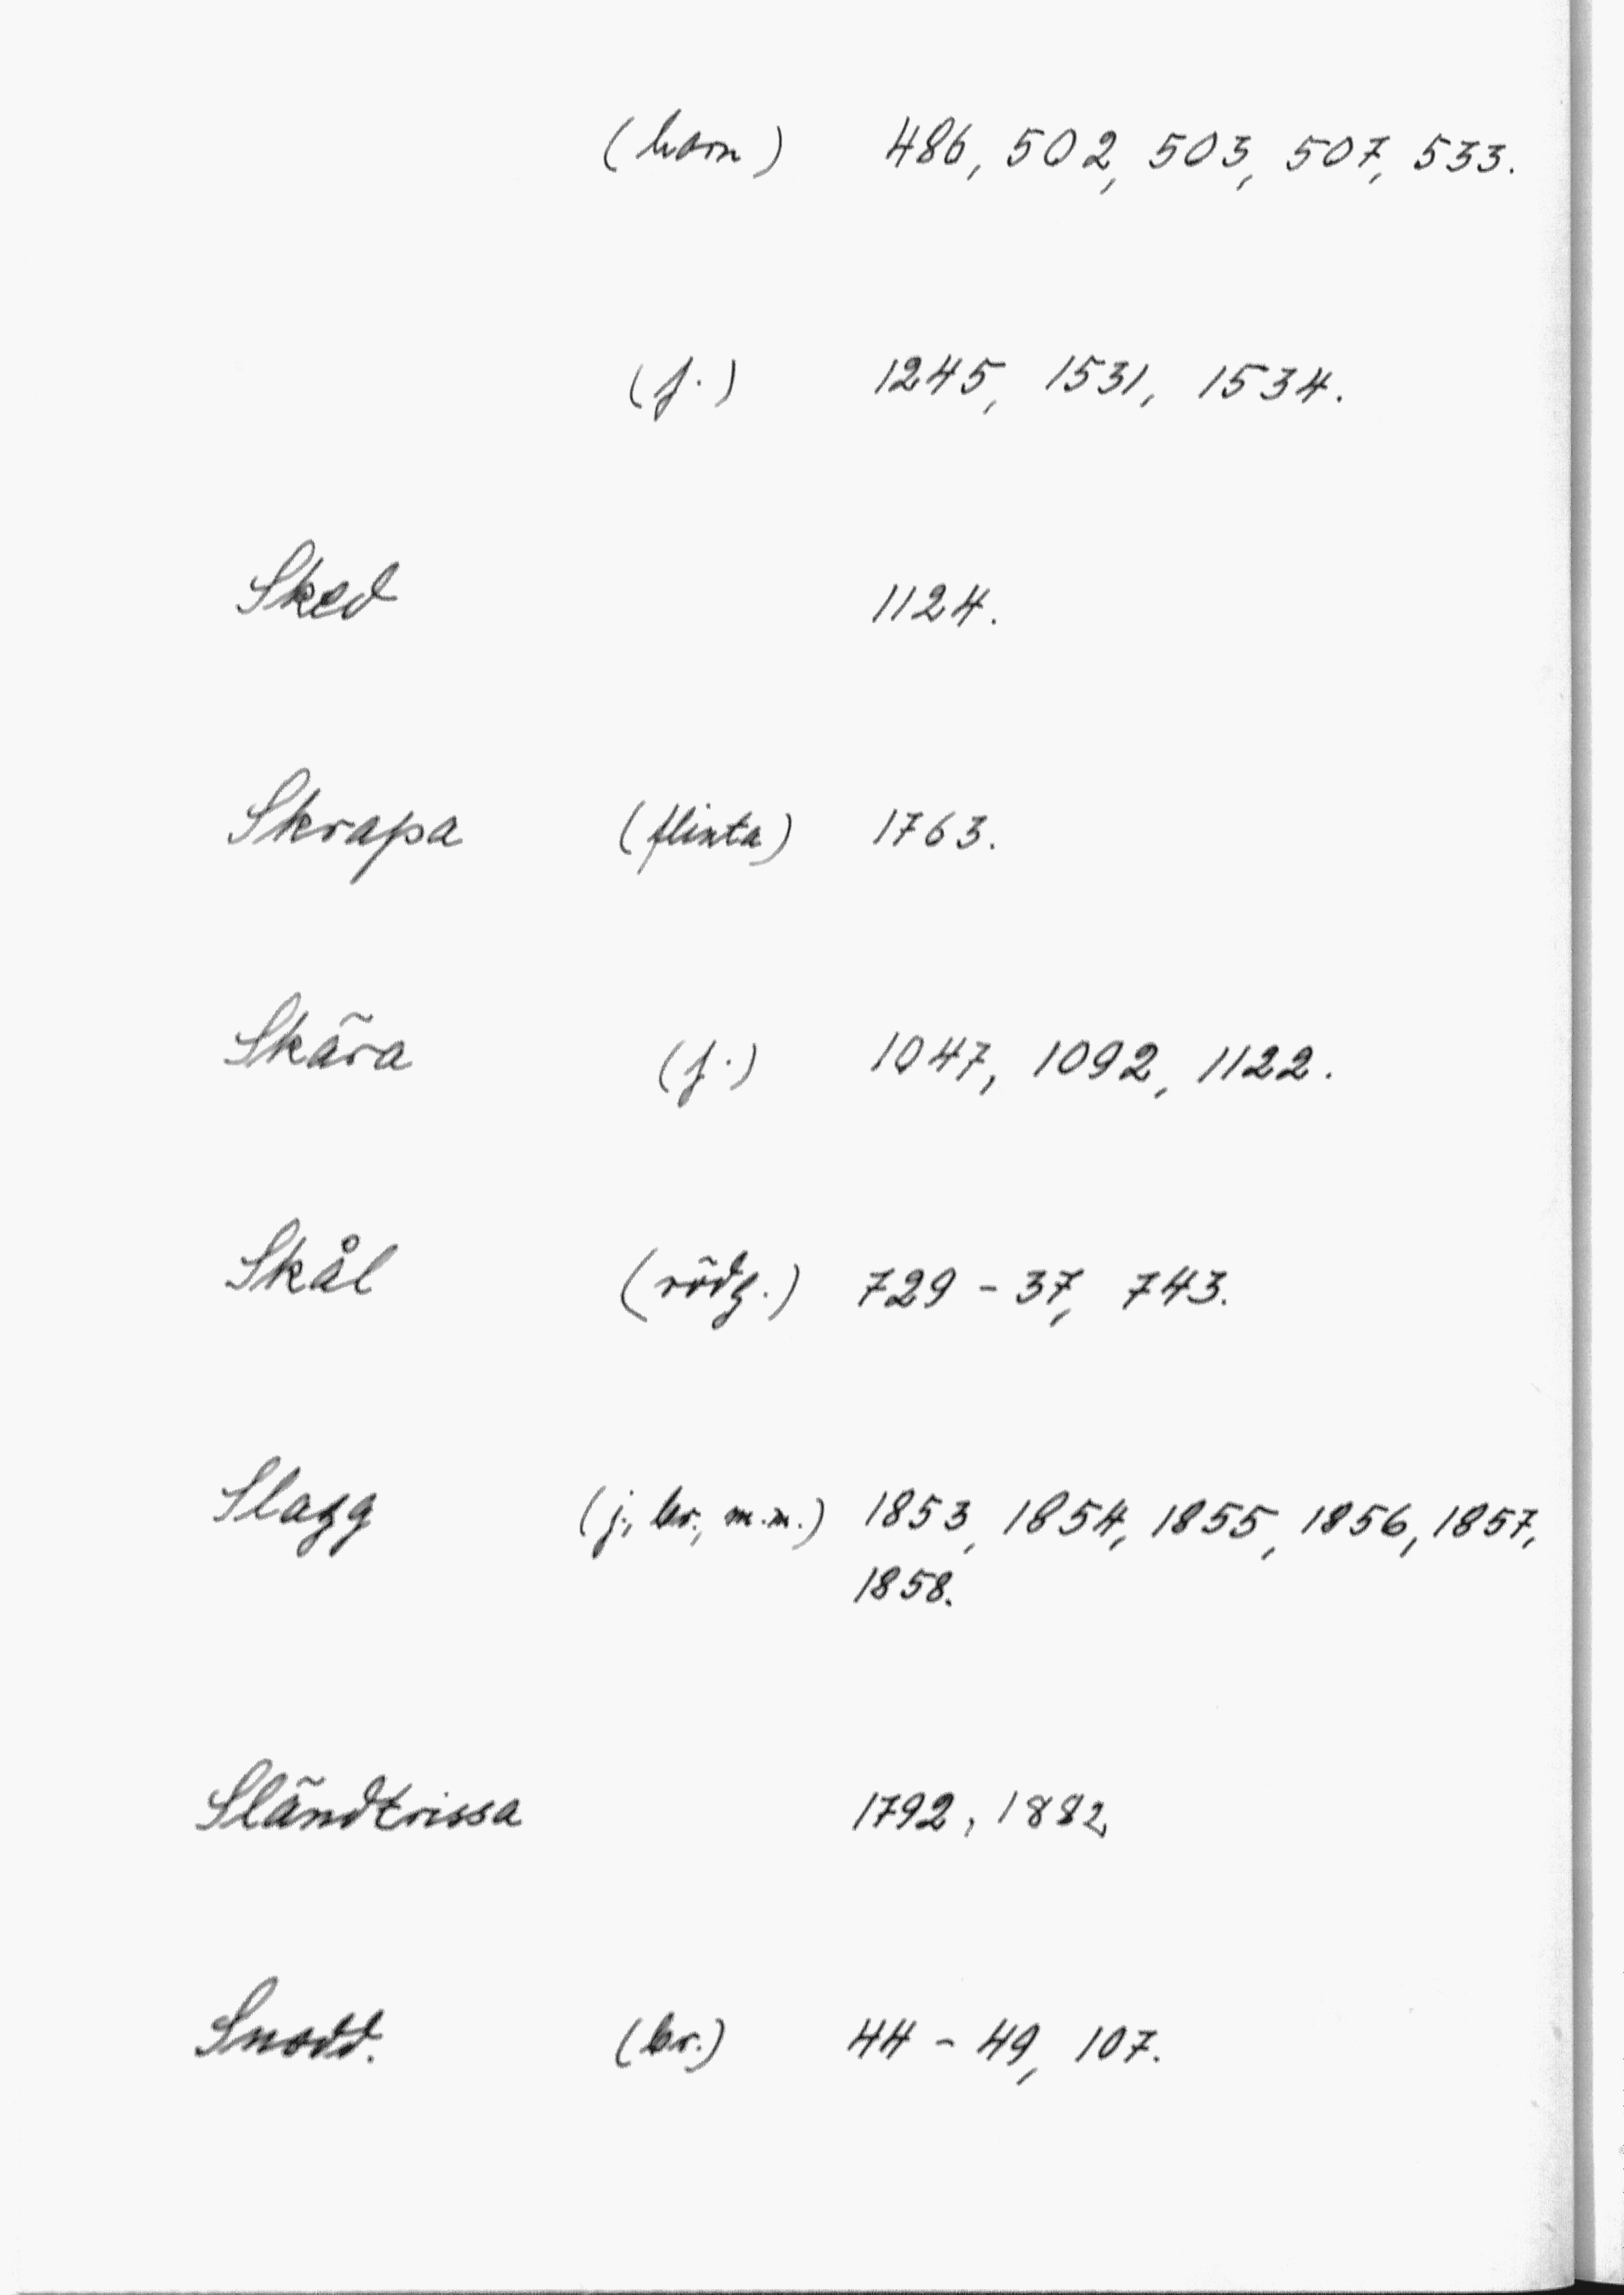 (horn) 486, 502, 503, 507, 533.
(j.) 1245, 1531, 1534.
Sked 1124.
Skrapa (flinta) 1763.
Skära (j.) 1047, 1092, 1122.
Skål (rödg.) 729 - 37, 743.
Slagg (j., br., m.m.) 1853, 1854, 1855, 1856, 1857,
1858.
Sländtrissa 1792, 1882,
Snodd. (br.) 44 - 49, 107.